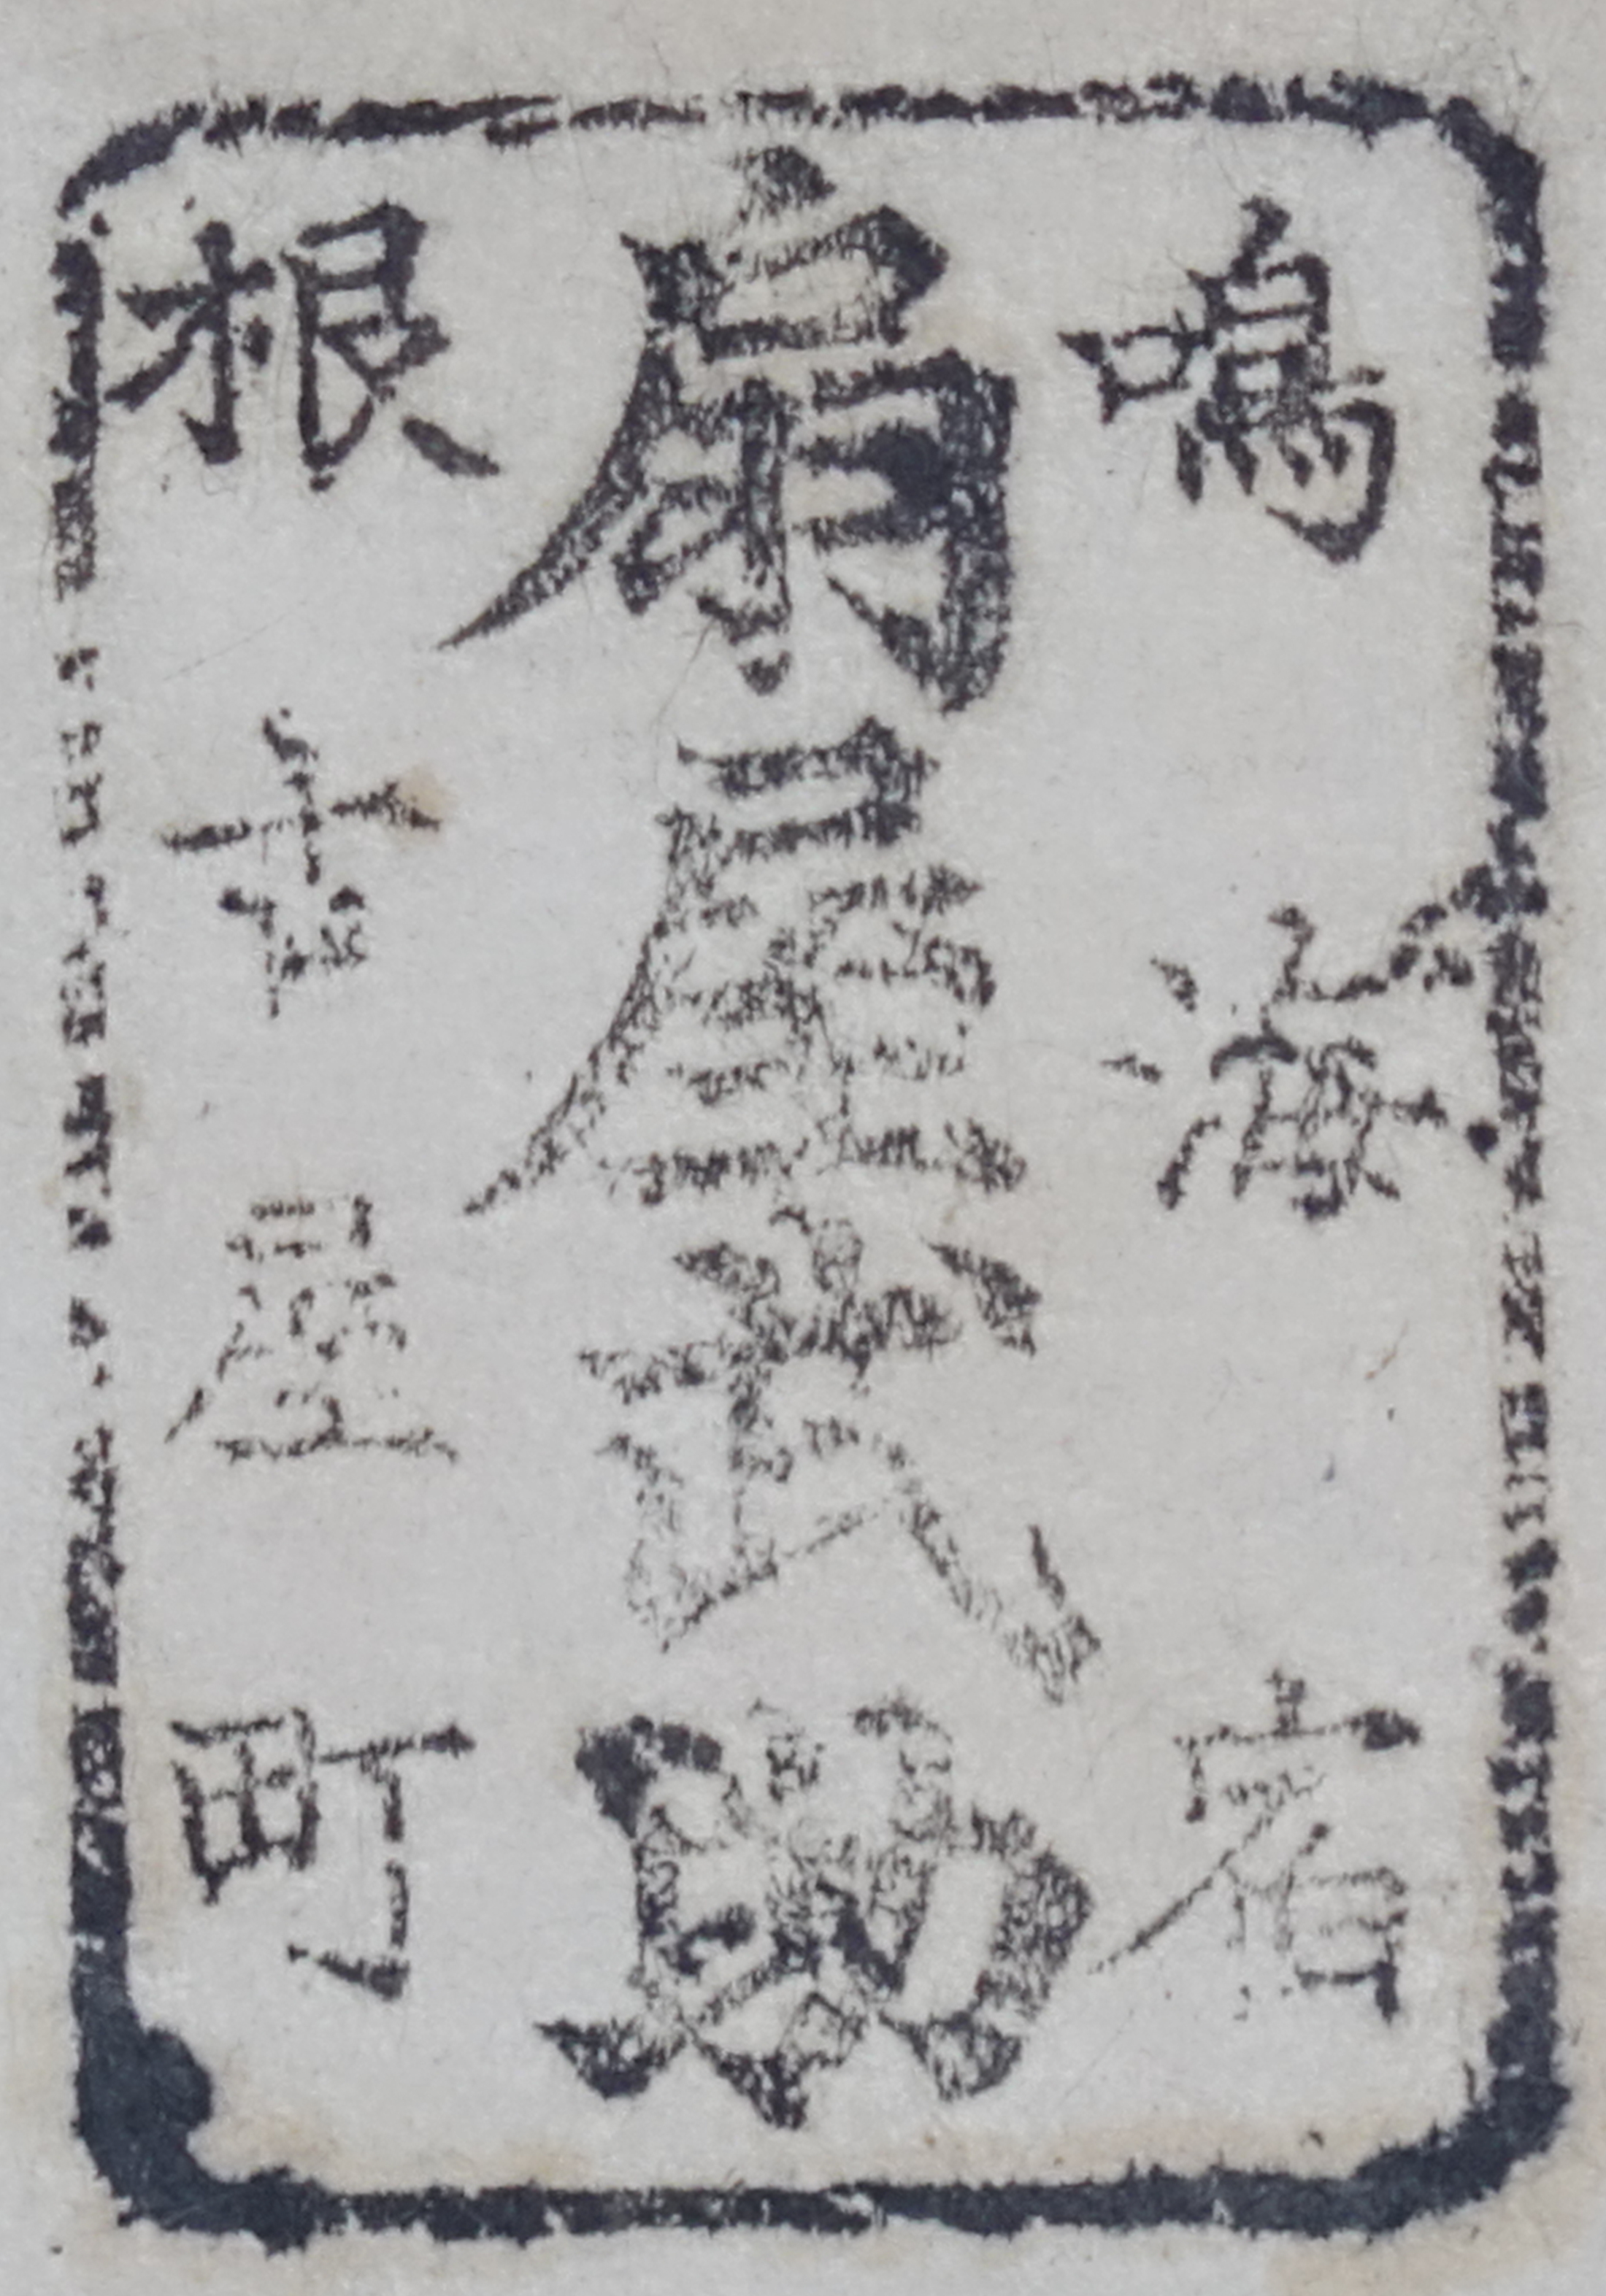 鳴海宿
扇屋武助
根古屋町